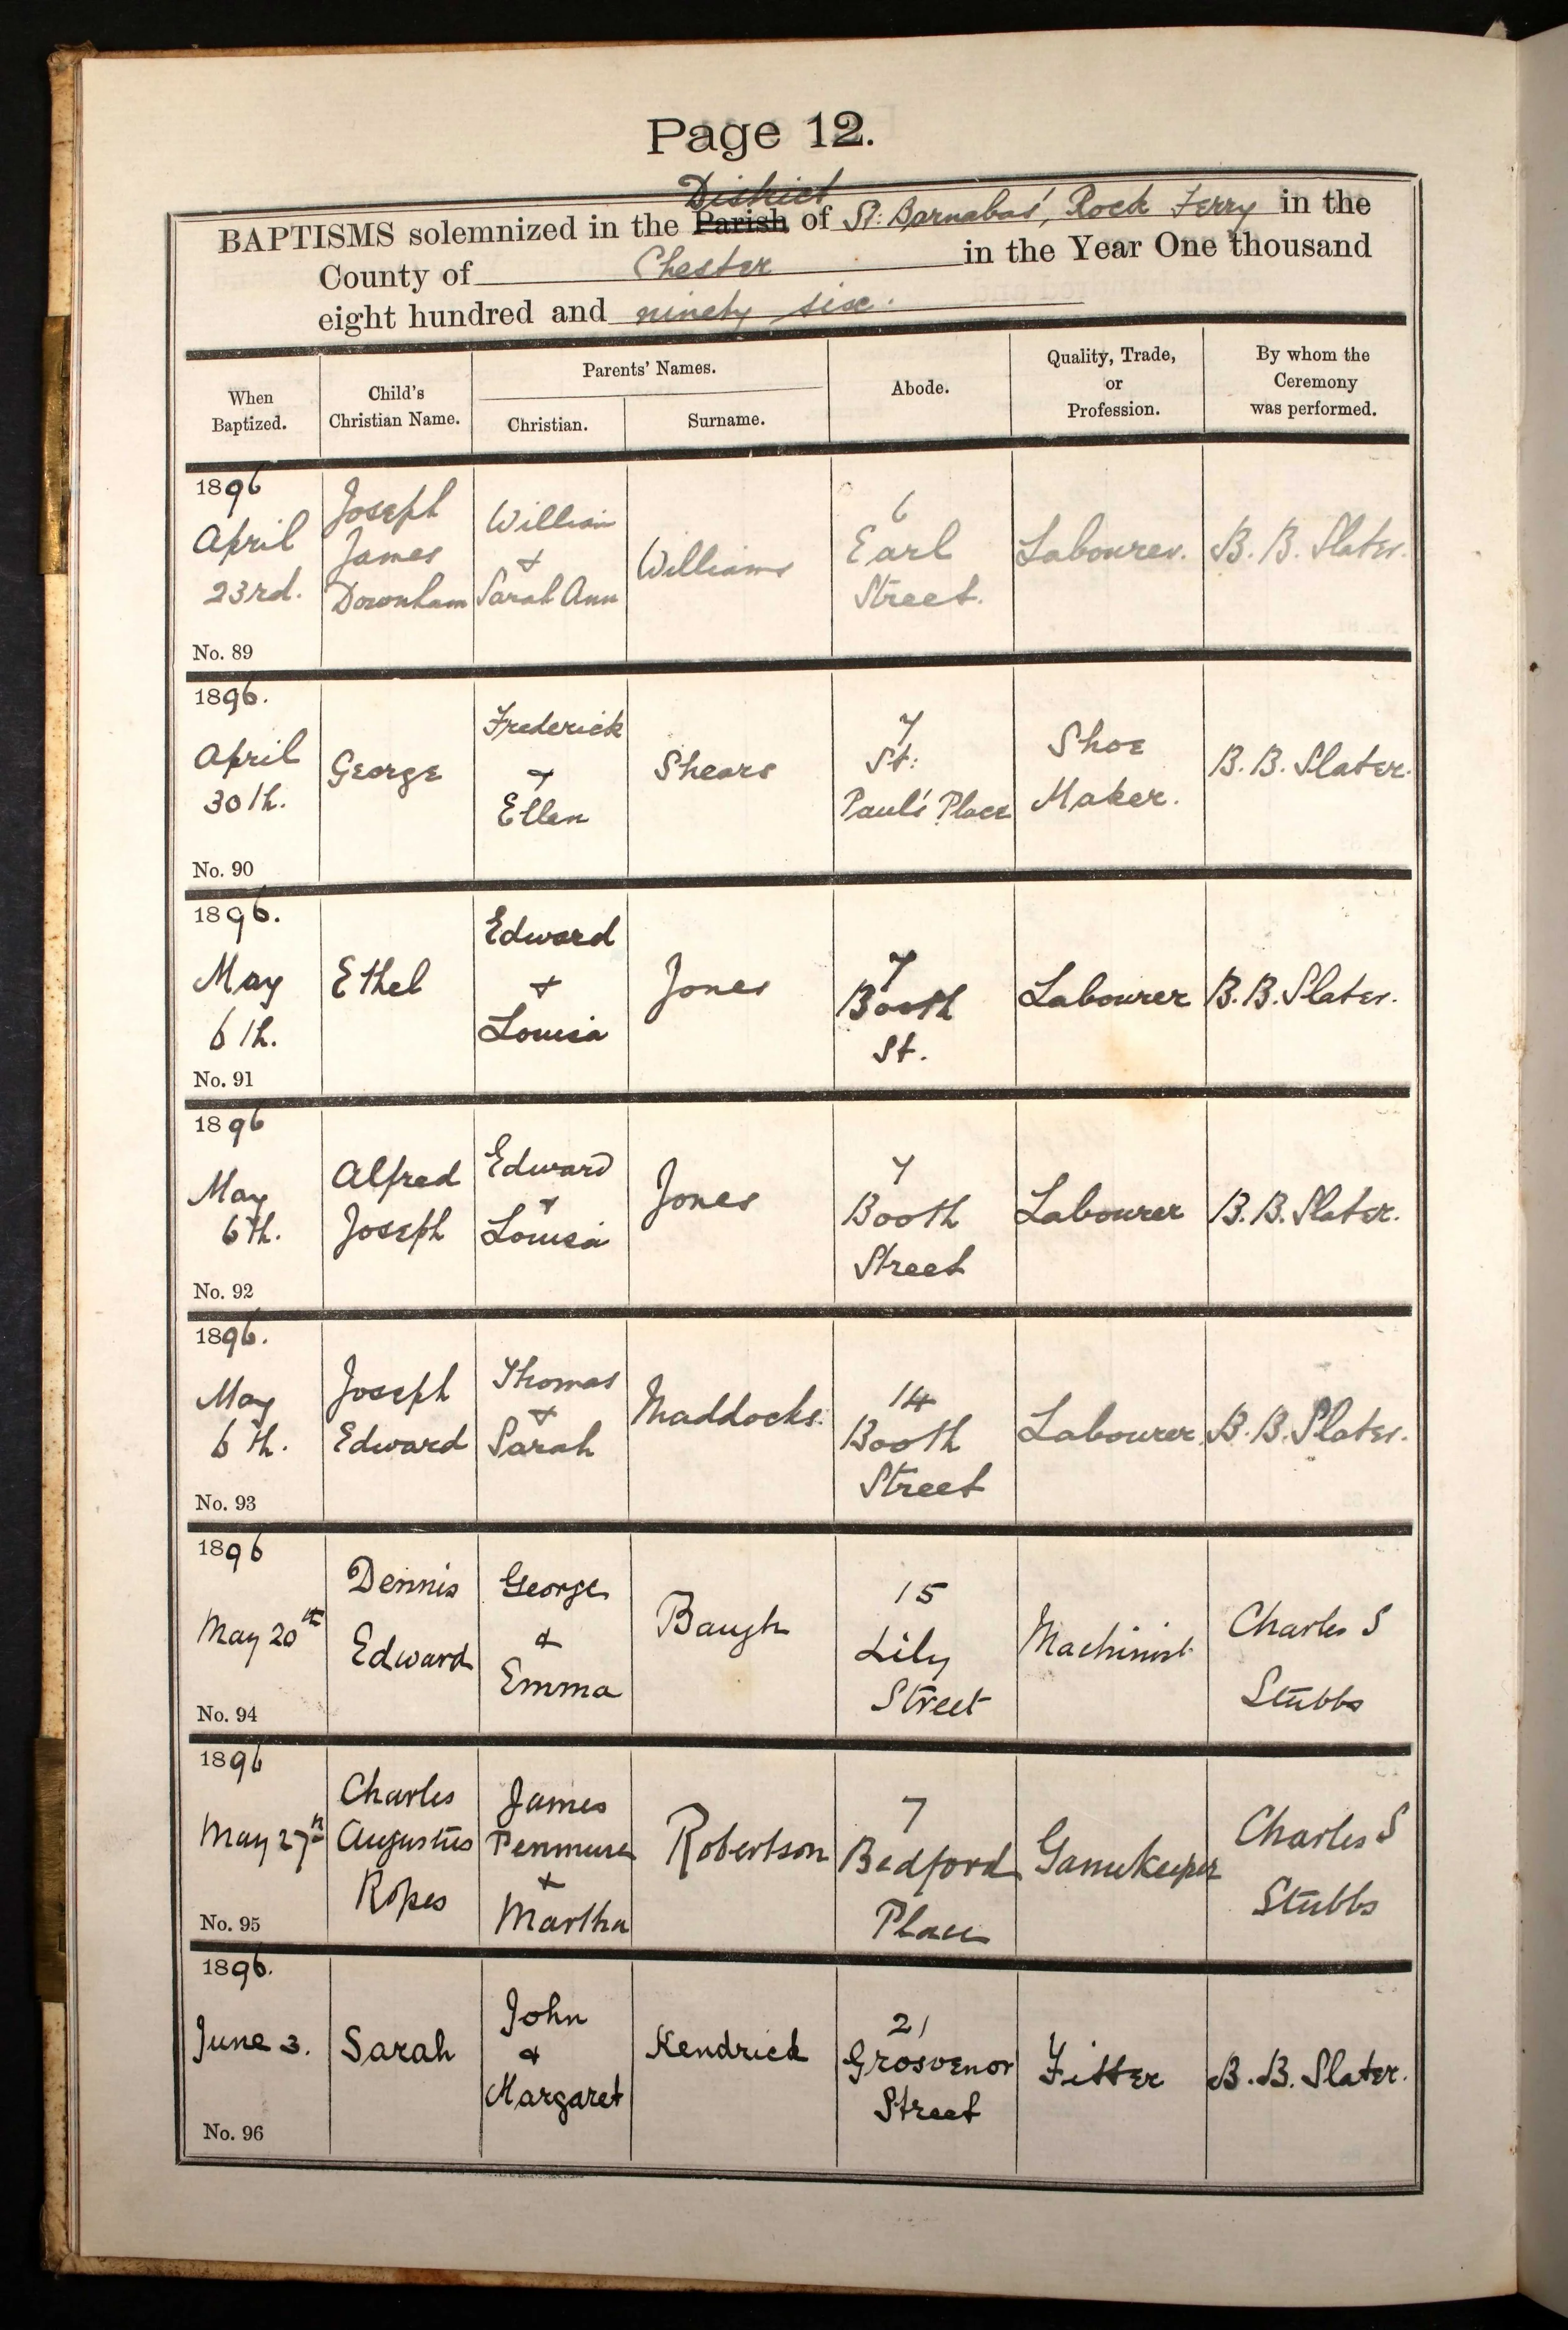 Page 12.
District
BAPTISMS solemnized in the Parish of St: Barnabas', Rock Ferry in the
County of Chester in the Year One thousand
eight hundred and ninety six.
When Baptized.
Child's Christian Name.
Parents' Names.
Christian.
Surname.
Abode.
Quality, Trade, or Profession.
By whom the Ceremony was performed.
1896
April
23rd.
No. 89
Joseph
James
Downham
William
+
Sarah Ann
Williams
6
Earl
Street.
Labourer.
B. B. Slater.
1896.
April
30th.
No. 90
George
Frederick
+
Ellen
Shears
7
St:
Paul's Place
Shoe
Maker.
B. B. Slater.
1896.
May
6th.
No. 91
Ethel
Edward
+
Louisa
Jones
7
Booth
St.
Labourer
B. B. Slater.
1896
May
6th.
No. 92
Alfred
Joseph
Edward
+
Louisa
Jones
7
Booth
Street
Labourer
B. B. Slater.
1896.
May
6th.
No. 93
Joseph
Edward
Thomas
+
Sarah
Maddocks.
14
Booth
Street
Labourer.
B. B. Slater.
1896
May 20th
No. 94
Dennis
Edward
George
&
Emma
Baugh
15
Lily
Street
Machinist
Charles S
Stubbs
1896
May 27th
No. 95
Charles
Augustus
Ropes
James
Penmure
+
Martha
Robertson
7
Bedford
Place
Gamekeeper
Charles S
Stubbs
1896.
June 3.
No. 96
Sarah
John
&
Margaret
Kendrick
21
Grosvenor
Street
Fitter
B. B. Slater.